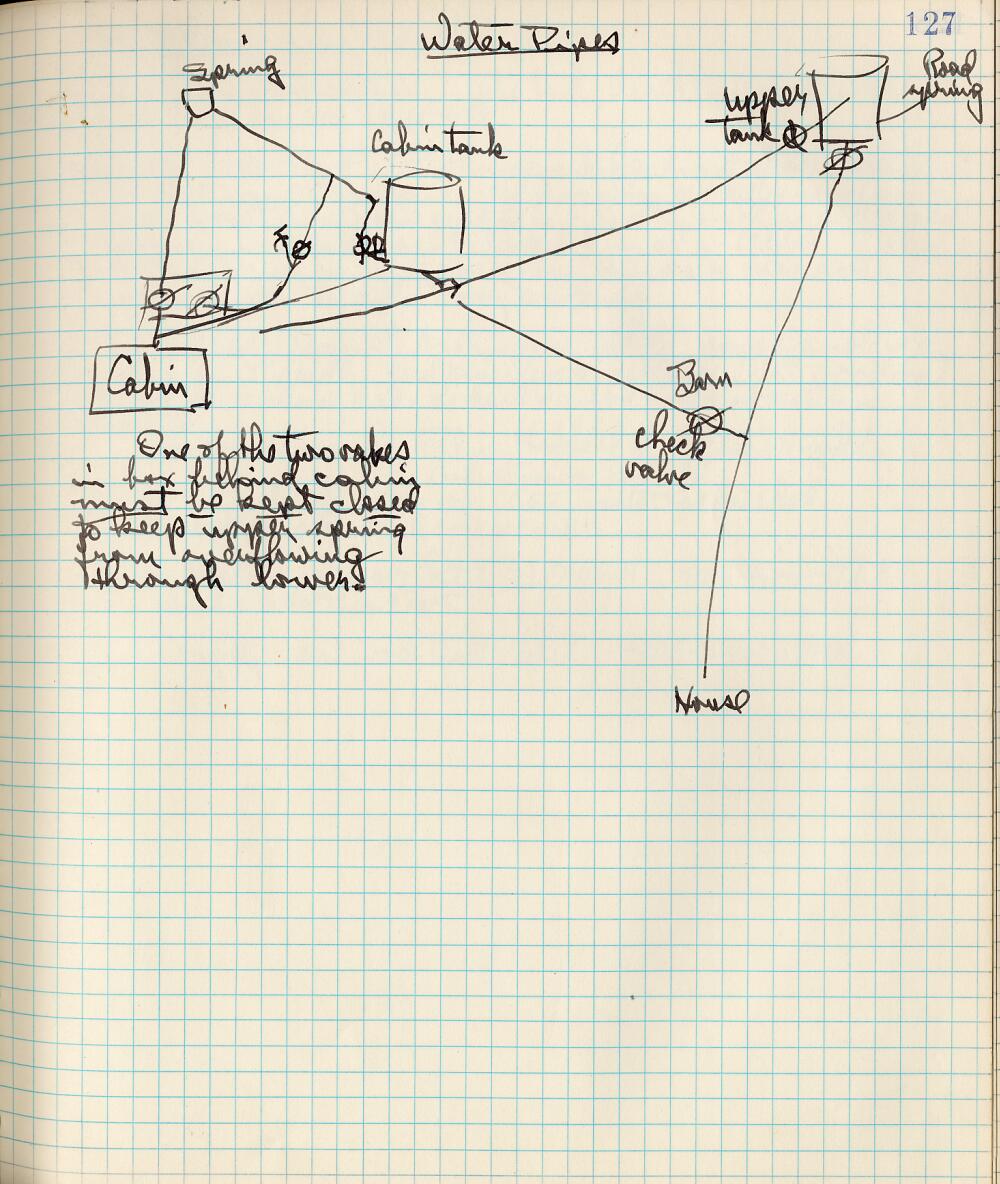 127
Water Pipes
Spring
Road
spring
upper
tank
Cabin tank
Cabin
Barn
check
valve
One of the two valves
in box behind cabin
must be kept closed
to keep upper spring
from overflowing
through lower.
House